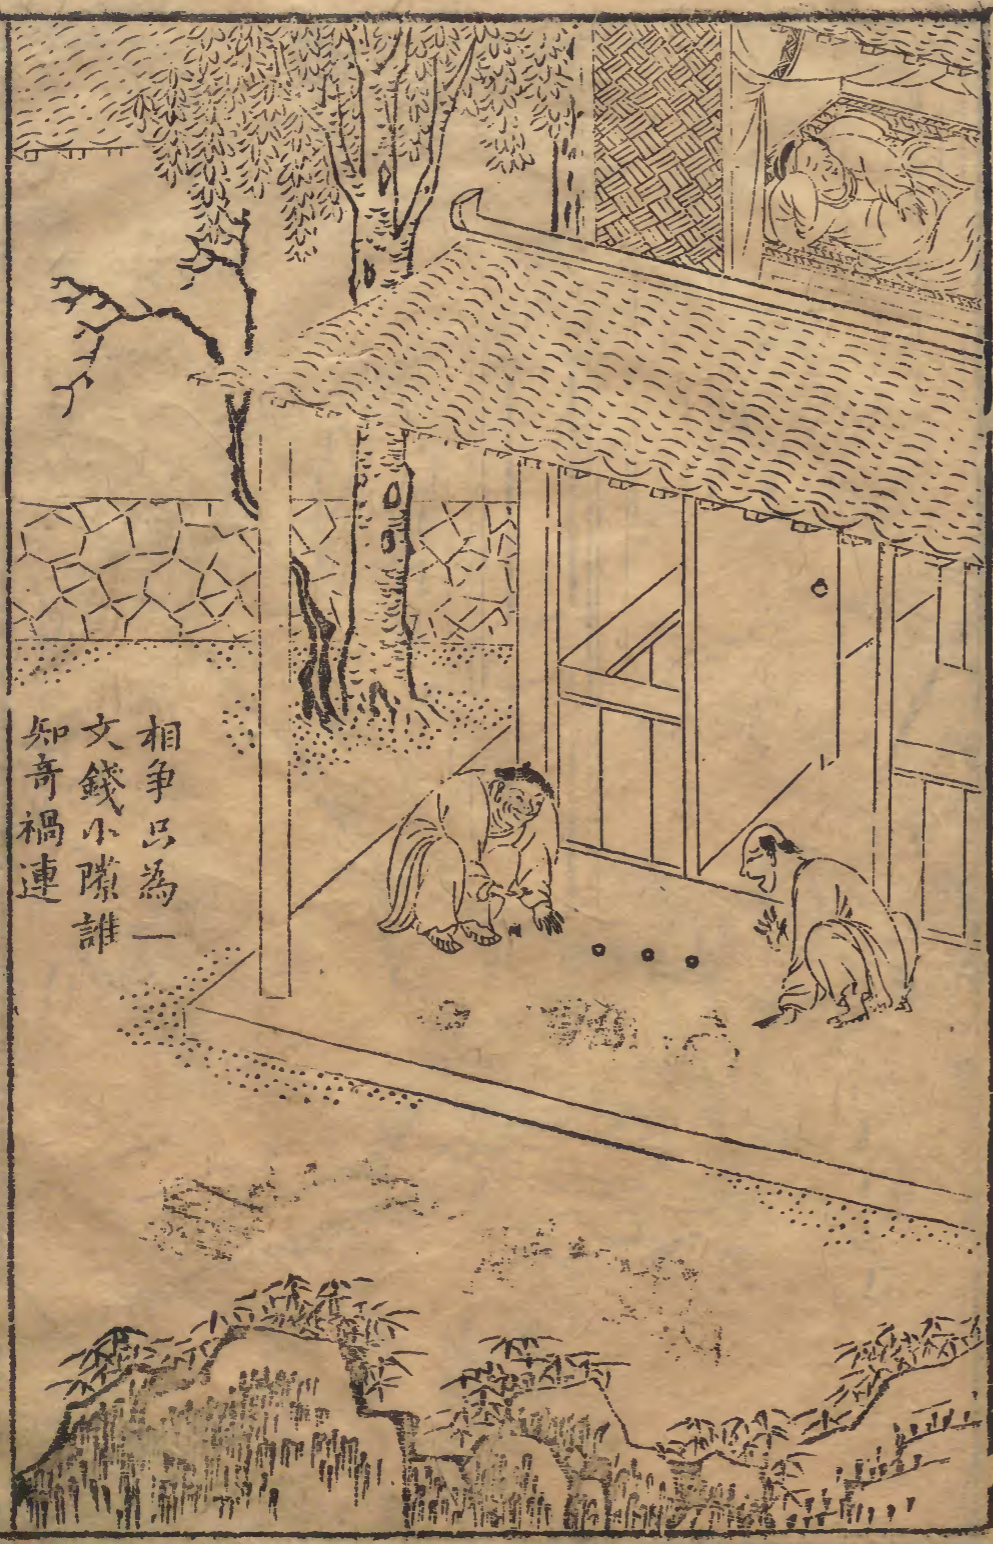 相争只為一
文錢小隙誰
知奇禍連